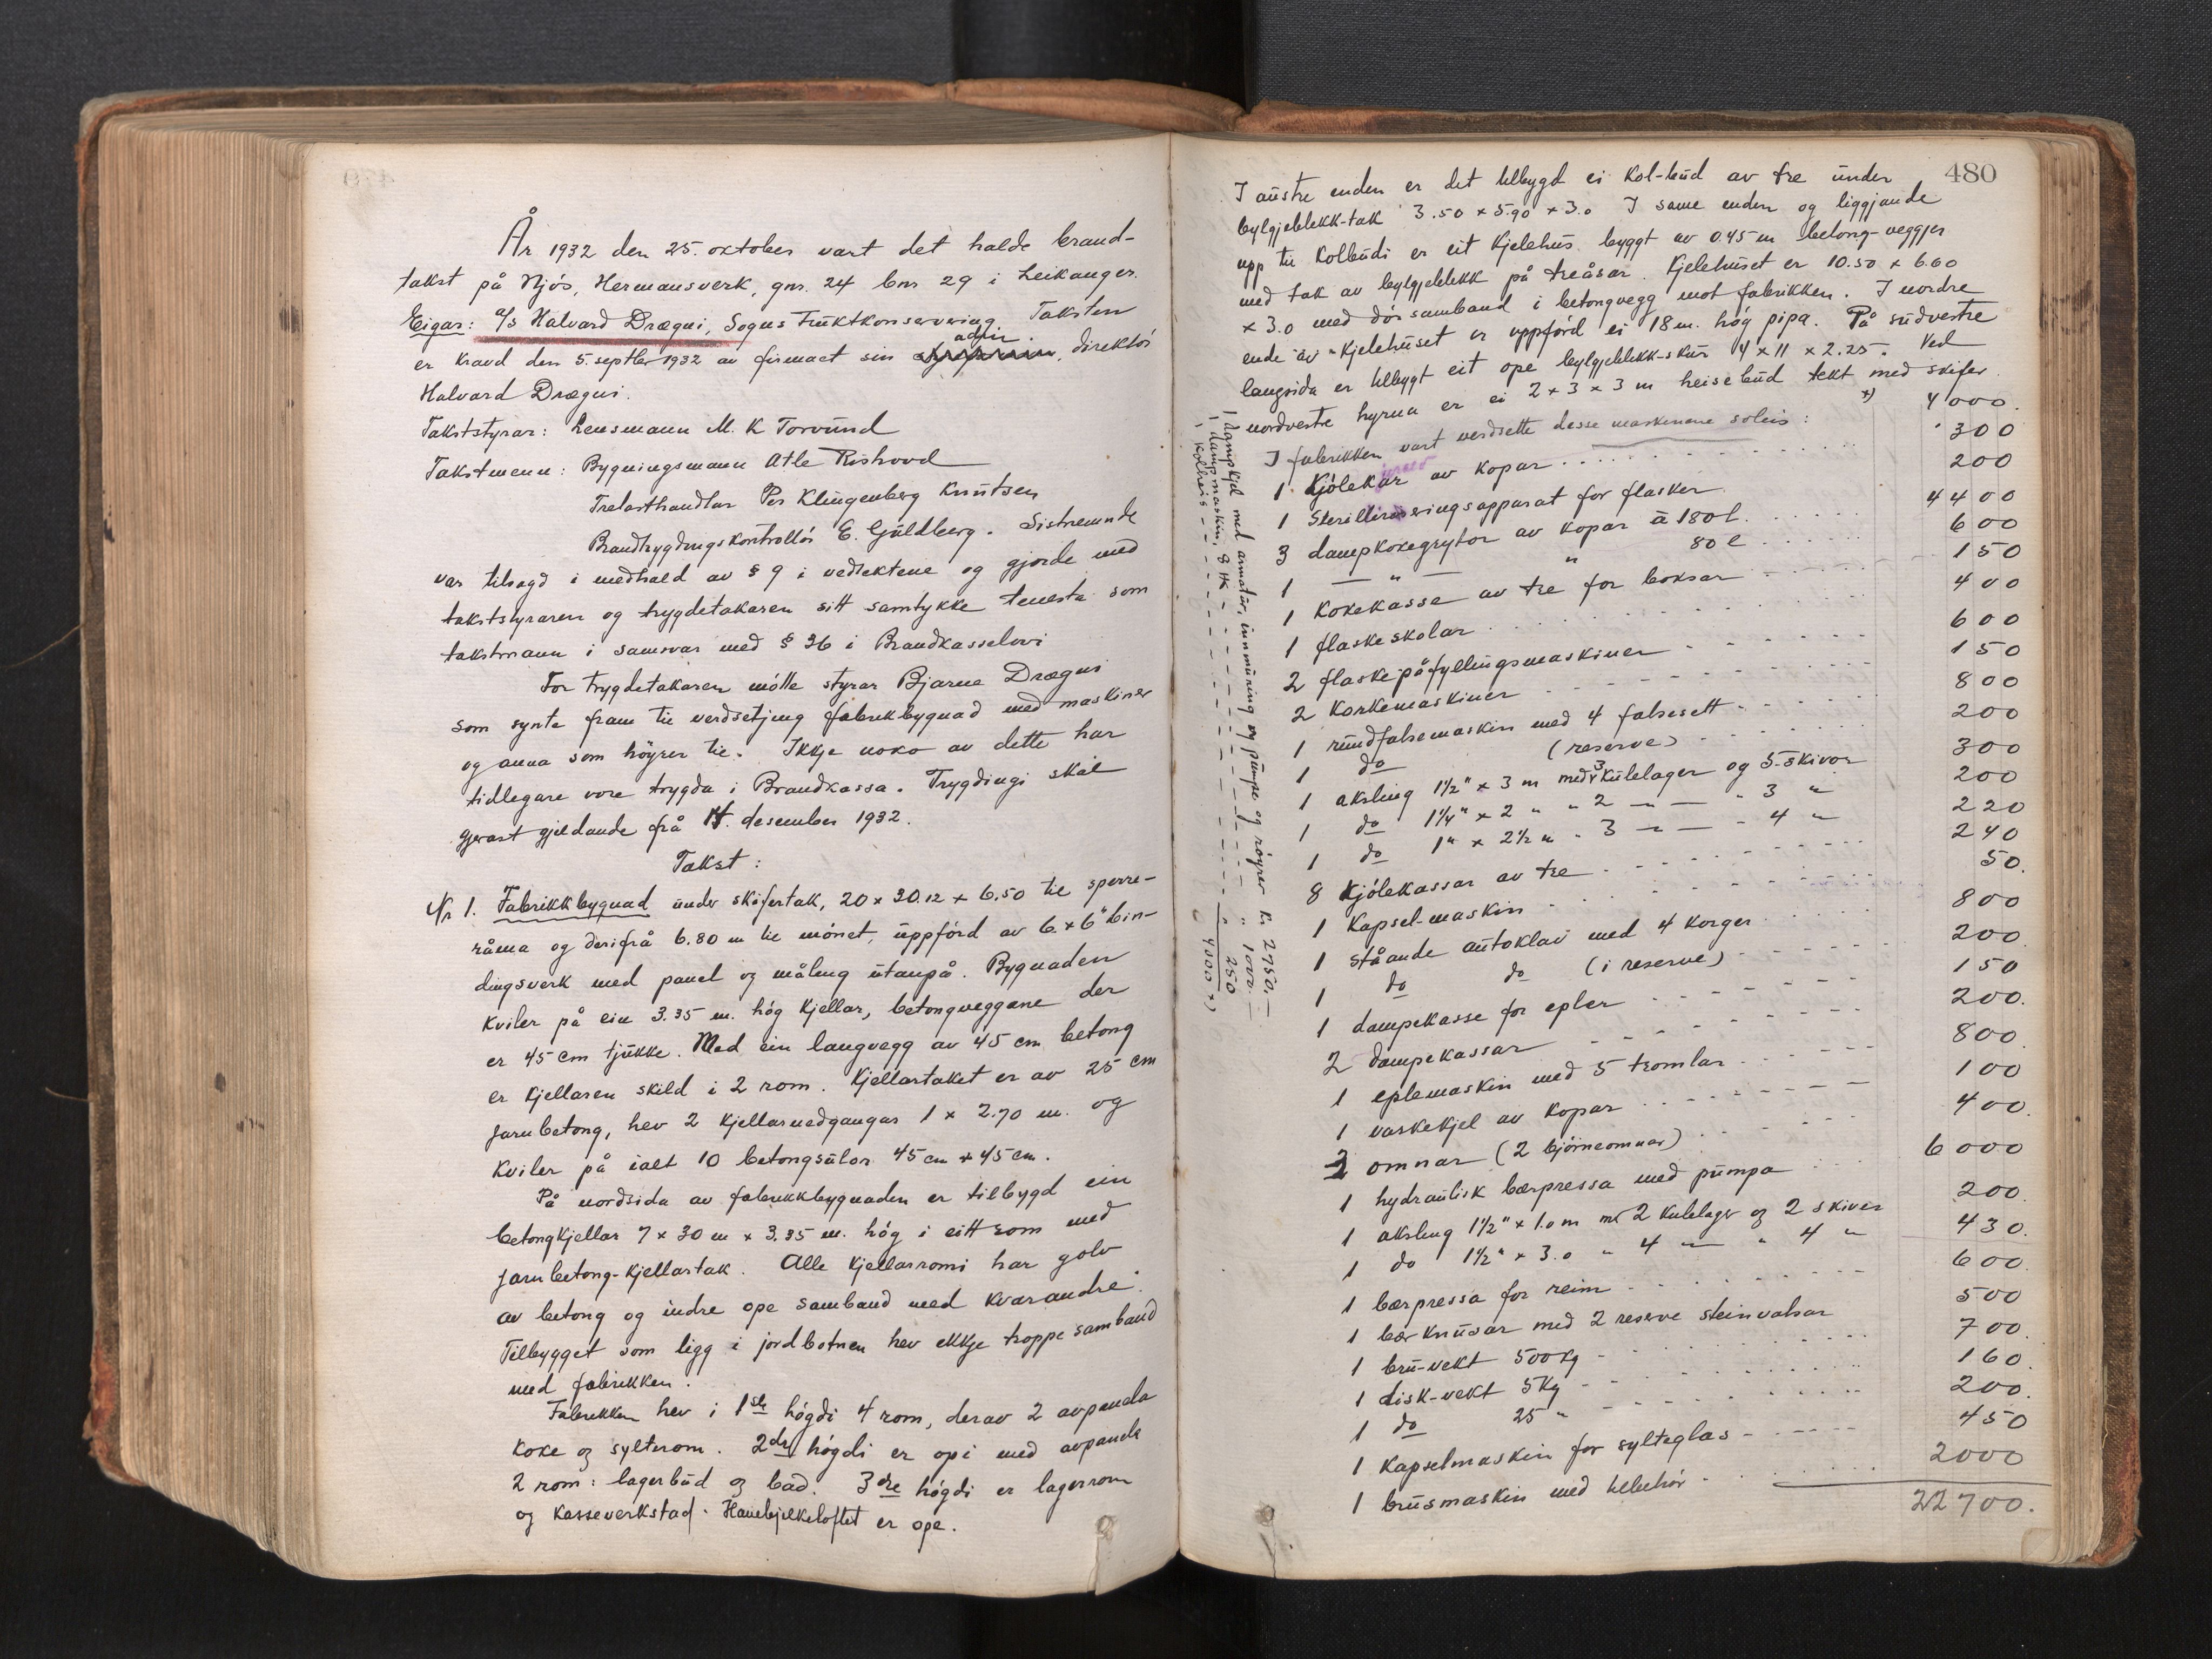 År 1932 den 25. oktober vart det halde brand-
takst på Njøs, Hermansverk, gnr. 24 bnr 29 i Leikanger.
Eigar: a/s Halvard Drægni, Sogns Fruktkonservering Taksten
er kravd den 5. septbr 1932 av firmaet sin adm. direktør
Halvard Drægni.
Takststyrar: Lensmann M. K Torvund
Takstmenn: Bygningsmann Atle Rishovd
Trelasthandlar Per Klingenberg Knutsen
Brandtrygdingskontrollør E. Guldberg. Sistnemnde
var tilsagd i medhald av § 9 i vedtektene og gjorde med
takststyraren og trygdetakaren sitt samtykke tenesta som
takstmann i samsvar med § 36 i Brandkasselovi
For trygdetakaren møtte styrar Bjarne Drægni
som synte fram til verdsetjing fabrikkbygnad med maskiner
og anna som høyrer til. Ikkje noko av dette har
tidlegare vore trygda i Brandkassa. Trygdingi skal
gjerast gjeldande frå 14. desember 1932.
Takst:
Nr 1. Fabrikkbygnad under skifertak, 20 x 30.12 x 6.50 til sperre-
råma og derifrå 6.80 m til mønet, uppførd av 6 x 6" bin-
dingsverk med panel og måling utanpå. Bygnaden
kviler på ein 3.35 m. høg kjellar, betongveggane der
er 45 cm tjukke. Med ein langvegg av 45 cm betong
er kjellaren skild i 2 rom. Kjellartaket er av 25 cm
jarnbetong, hev 2 kjellarnedgangar 1 x 2.70 m. og
kviler på ialt 10 betongsulor 45 cm x 45 cm.
På nordsida av fabrikkbygnaden er tilbygd ein
betongkjellar 7 x 30 m x 3.35 m. høg i eitt rom med
jarnbetong-kjellartak. Alle kjellarromi har golv
av betong og indre ope samband med kvarandre.
Tilbygget som ligg i jordbotnen hev ikkje trappesamband
med fabrikken.
Fabrikken hev i 1ste høgdi 4 rom, derav 2 avpanela
koke og sylterom. 2dre høgdi er opi med avpanela
2 rom: lagerbud og bad. 3dre høgdi er lagerrom
og kasseverkstad. Hanebjelkeloftet er ope.
480
I austre enden er det tilbygd ei kol-bud av tre under
bylgjeblekk-tak 3.50 x 5.90 x 3.0 I same enden og liggjande
upp til kolbudi er eit kjelehus bygt av 0.45 m betong-veggjer
med tak av bylgjeblekk på treåsar. Kjelehuset er 10.50 x 6.60
x 3.0 med dør samband i betongvegg mot fabrikken. I nordre
ende av kjelehuset er uppførd ei 18 m. høg pipa. På sudvestre
langsida er tilbygt eit ope bylgjeblekk-skur 4 x 11 x 2.25. Ved
nordvestre hyrna er ei 2 x 3 x 3 m heisebud tekt med skifer.
I fabrikken vart verdsette desse maskinene soleis: x) 4000.
1 Kjølekar av kopar 300
1 Steriliseringsapparat for flasker 200
3 dampkokegrytor av kopar à 180 l. 4400
1 — " — " 80 l 600
1 Kokekasse av tre for boksar 150
1 flaskeskolar 400
2 flaskepåfyllingsmaskiner 600
2 Korkemaskiner 150
1 rundfalsemaskin med 4 falsesett 800
1 do (reserve) 200
1 aksling 1½" x 3 m med 3 kulelager og 5 skivor 300
1 do 1¼" x 2 " " 2 — " — " 3 " 200
1 do 1" x 2½ " " 3 — " — " 4 " 220
8 Kjølekassar av tre 240
1 Kapsel-maskin 50.
1 stående autoklav med 4 korger 800
1 do do (i reserve) 200
1 dampekasse for epler 150
2 dampekassar 200.
1 eplemaskin med 5 tromlar 800.
1 vaskekjel av kopar 100
2 omnar (2 bjørneomnar) 400.
1 hydraulisk bærpressa med pumpa 6000
1 aksling 1½" x 1.0 m m/ 2 kulelager og 2 skiver 200.
1 do 1½" x 3.0 " 4 — " — " 4 " 430.
1 bærpressa for reim 600.
1 bær knusar med 2 reserve steinvalsar 500
1 bru-vekt 500 kg 700.
1 disk-vekt 5 kg 160.
1 do 25 " 200.
1 kapselmaskin for sylteglas 450
1 brusmaskin med tilbehør 2000
22700.
1 dampkjel med armatur, innmuring og pumpe og røyrer kr 2750.—
1 dampmaskin, 8 HK " 1000.—
1 Kolheis " 250
" 4000 x)